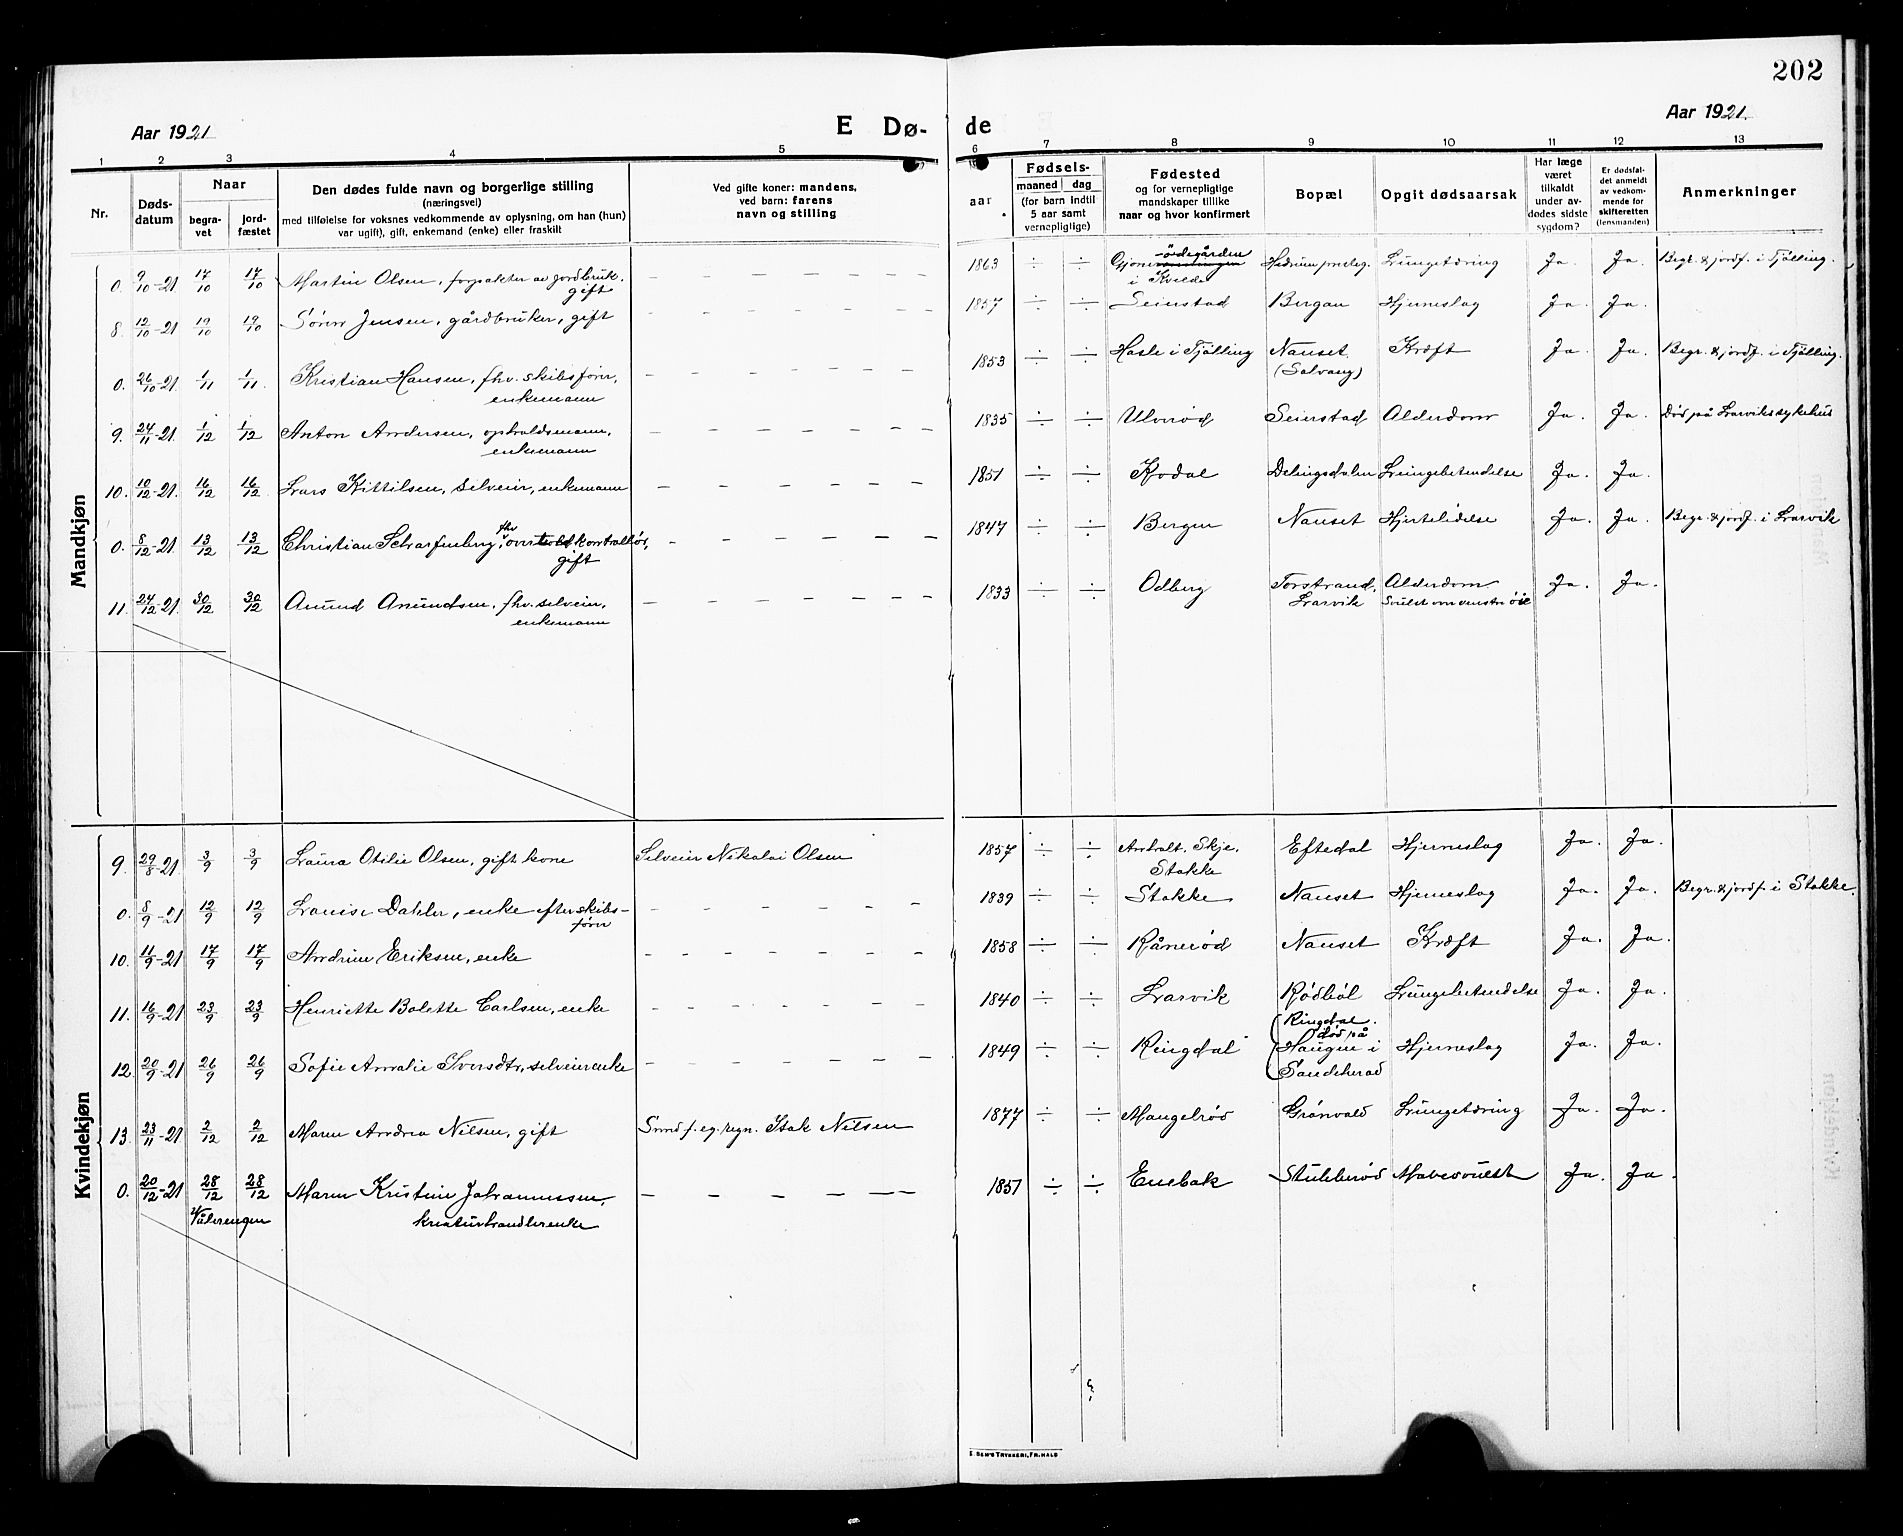 202
Aar 1921
E Dø-
de
Aar 1921.
1 2 3 4 5 6 7 8 9 10 11 12 13
Nr.
Døds-
datum
Naar
begra-
vet
jord-
fæstet
Den dødes fulde navn og borgerlige stilling
(næringsvei)
med tilføielse for voksnes vedkommende av oplysning, om han (hun)
var ugift), gift, enkemand (enke) eller fraskilt
Ved gifte koner: mandens,
ved barn: farens
navn og stilling
aar
Fødsels-
maaned dag
(for barn indtil
5 aar samt
vernepligtige)
Fødested
og for vernepligtige
mandskaper tillike
naar og hvor konfirmert
Bopæl
Opgit dødsaarsak
Har læge
været
tilkaldt
under av-
dødes sidste
sygdom?
Er dødsfal-
det anmeldt
av vedkom-
mende for
skifteretten
(lensmanden)
Anmerkninger
Mandkjøn
0. 9/10-21 17/10 17/10 Martin Olsen, forpakter av jordbruk. gift — — — — — — 1863 ÷ ÷ Gjone-ødegården i Kvelde Hedrum presteg. Lungetæring Ja. Ja. Begr. & jordf. i Tjølling.
8. 12/10-21 19/10 19/10 Sören Jensen, gårdbruker, gift — — — — — — 1857 ÷ ÷ Seierstad Bergan Hjerneslag Ja. Ja.
0. 26/10-21 1/11 1/11. Kristian Hansen, fhv. skibsfører, enkemann — — — — — — 1853 ÷ ÷ Hasle i Tjølling Nanset. (Solvang) Kræft Ja. Ja. Begr. & jordf. i Tjølling.
9. 24/11-21 1/12 1/12 Anton Andersen, opholdsmann, enkemann — — — — — — 1835 ÷ ÷ Ulverød Seierstad Alderdom Ja. Ja. Død på Larvik sykehus
10. 10/12-21 16/12 16/12 Lars Kittilsen, selveier, enkemann — — — — — — 1851 ÷ ÷ Kodal Delingsdalen Lungebetendelse Ja. Ja.
0. 8/12-21 13/12 13/12 Christian Scharfenberg, fhv. overtoldkontrollør, gift — — — — — — 1847 ÷ ÷ Bergen Nanset Hjertelidelse Ja. Ja. Begr. & jordf. i Larvik
11. 24/12-21 30/12 30/12 Anund Anundsen, fhv. selveier, enkemann — — — — — — 1833 ÷ ÷ Odberg Torstrand, Larvik Alderdom Svulst over venstre öie Ja. Ja.
Kvindekjøn
9. 29/8-21 3/9 3/9 Laura Otilie Olsen, gift kone Selveier Nikolai Olsen 1857 ÷ ÷ Anholt, Skje. Stokke Eftedal Hjerneslag Ja. Ja.
0. 8/9-21 12/9 12/9 Lovise Dahler, enke efter skibs-fører — — — — — — 1839 ÷ ÷ Stokke Nanset Hjerneslag Ja. Ja. Begr. & jordf. i Stokke.
10. 11/9-21 17/9 17/9 Andrine Eriksen, enke — — — — — — 1858 ÷ ÷ Rånerød Nanset Kræft Ja. Ja.
11. 16/9-21 23/9 23/9 Henriette Bolette Carlsen, enke — — — — — 1840 ÷ ÷ Larvik Rødbøl Lungebetendelse Ja. Ja.
12. 20/9-21 26/9 26/9 Sofie Amalie Iversdtr, selveierenke — — — — — — 1849 ÷ ÷ Ringdal (Ringdal. død på Haugen i Sandeherad Hjerneslag Ja. Ja.
13. 23/11-21 2/12 2/12 Maren Andrea Nilsen, gift Smed f. eg. regn. Isak Nilsen 1877 ÷ ÷ Mangelrød Grønvold Lungetæring Ja. Ja.
0. 20/12-21 28/12 28/12 Maren Kristine Johannessen, — — — — — — 1851 ÷ ÷ Enebak Stubberød Mavesvulst Ja. Ja.
Vålerengen kreaturhandlerenke